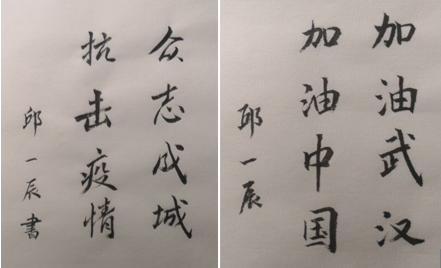 众志成城
抗击疫情
邱一辰書
加油武汉
加油中国
邱一辰